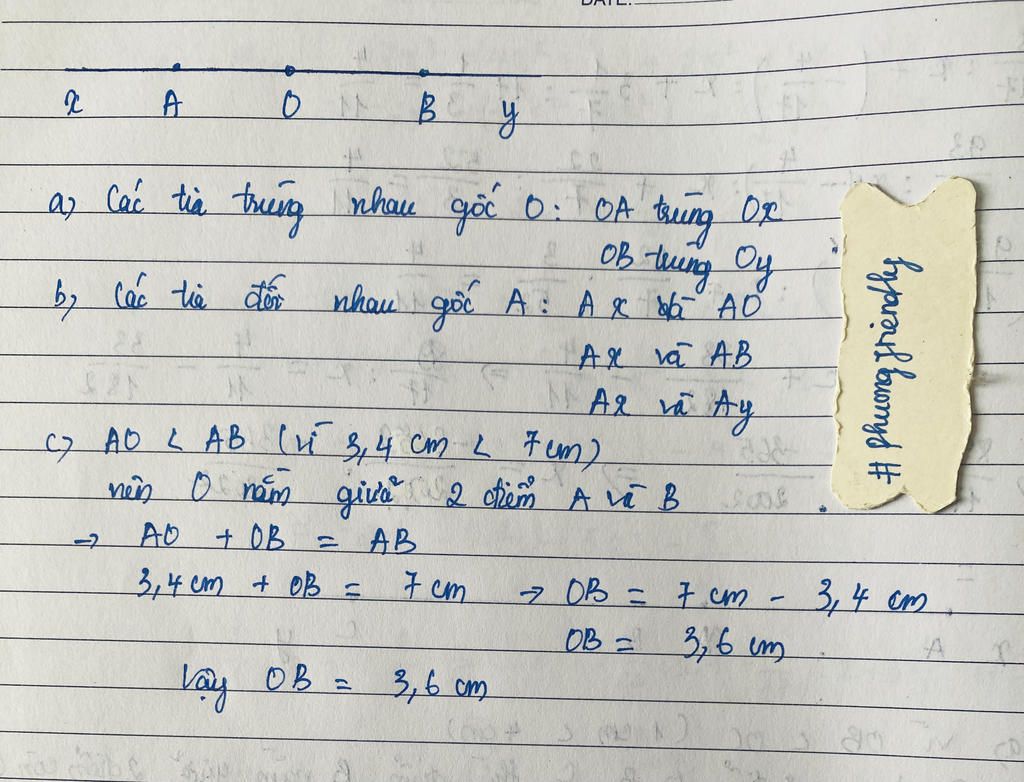 DATE:
x A O B y
a, Các tia trùng nhau gốc O: OA trùng Ox
OB trùng Oy
b, Các tia đối nhau gốc A: Ax và AO
Ax và AB
Ax và Ay
c, AO < AB (vì 3,4 cm < 7 cm)
nên O nằm giữa 2 điểm A và B
→ AO + OB = AB
3,4 cm + OB = 7 cm → OB = 7 cm - 3,4 cm
OB = 3,6 cm
Vậy OB = 3,6 cm
# phuongfriendly